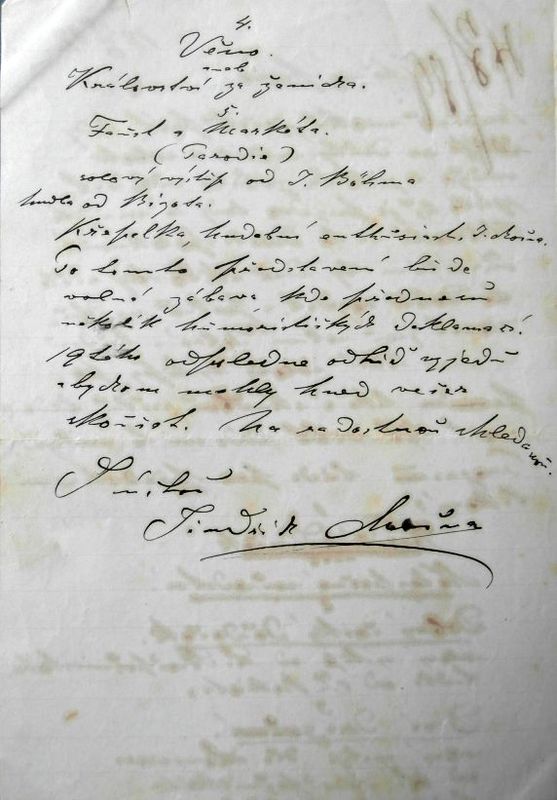 4.
Věno.
aneb
Království za ženicha.
5.
Faust a Markéta.
(Parodie)
solový výstup od J. Böhma
hudba od Bizota.
Křepelka, hudební enthusiast, J. Mošna.
Po tomto představení bude
volná zábava kde přednesu
několik humoristických deklamací.
19 této odpoledne odtud vyjedu
abychom mohly hned večer
zkoušet. Na radostnou shledanou.
S úctou
Jindřich Mošna